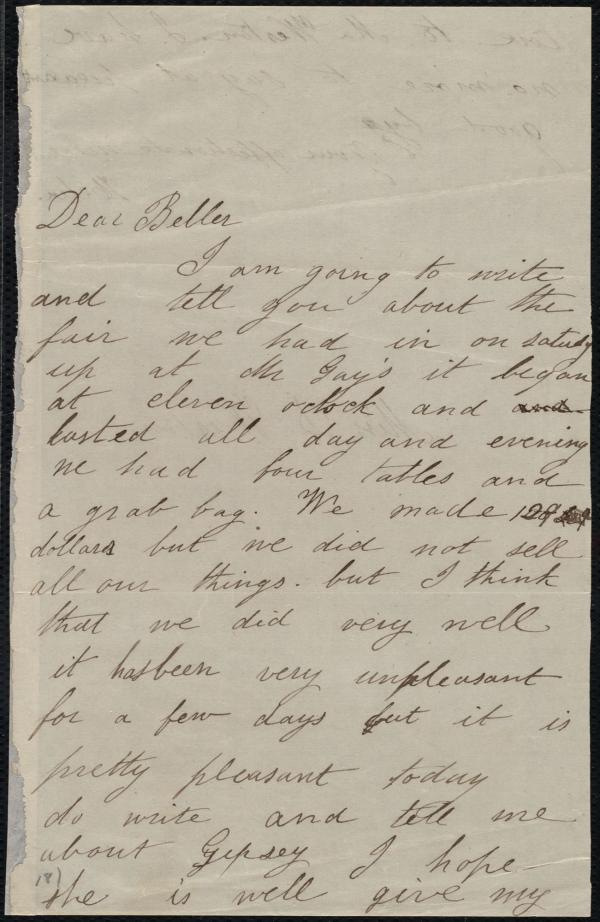 Dear Beller
I am going to write
and tell you about the
fair we had in on saturdy
up at Mr Gay's it began
at eleven oclock and and
lasted all day and evening
we had four tables and
a grab bag. We made 129
dollars but we did not sell
all our things. but I think
that we did very well
it has been very unpleasant
for a few days but it is
pretty pleasant today
do write and tell me
about Gipsey I hope
she is well give my